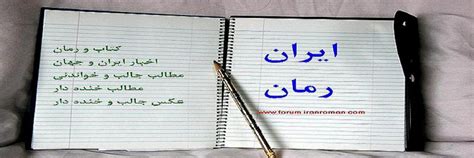 ایران
رمان
www.forum.iranroman.com
کتاب و رمان
اخبار ایران و جهان
مطالب جالب و خواندنی
مطالب خنده دار
عکس جالب و خنده دار